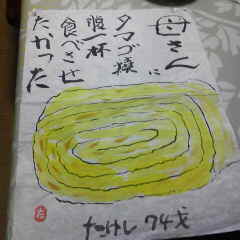 母さんに
タマゴ焼
腹一杯
食べさせ
たかった
たけし 74才
た